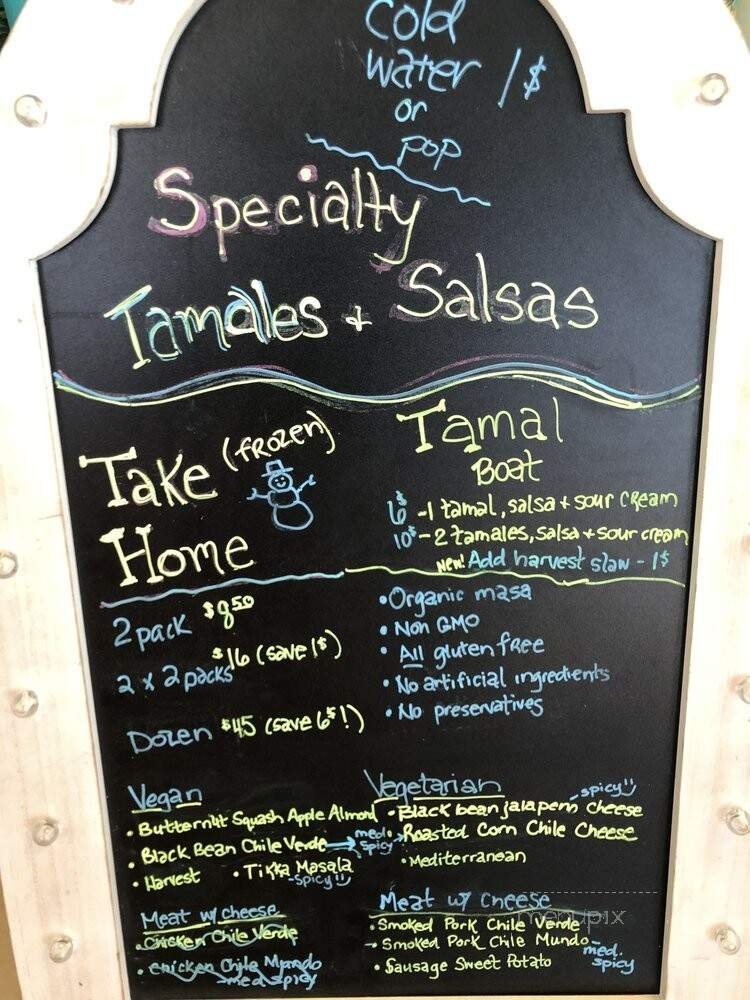 Cold
water 1$
or
pop
Specialty
Tamales + Salsas
Take (frozen)
Home
2 pack $8.50
2 x 2 packs $16 (save 1$)
Dozen $45 (save 6$!)
Tamal
Boat
6$ - 1 tamal, salsa + sour cream
10$ - 2 tamales, salsa + sour cream
New! Add harvest slaw - 1$
• Organic masa
• Non GMO
• All gluten free
• No artificial ingredients
• No preservatives
Vegan
• Butternut Squash Apple Almond
• Black Bean Chile Verde → med. spicy
• Harvest • Tikka Masala
- spicy
Vegetarian
- spicy
• Black bean jalapeno cheese
Roasted Corn Chile Cheese
• Mediterranean
Meat w/ cheese
• Chicken Chile Verde
• Chicken Chile Mundo
med spicy
Meat w/ Cheese
• Smoked Pork Chile Verde
- Smoked Pork Chile Mundo - med. spicy
• Sausage Sweet Potato
menupix